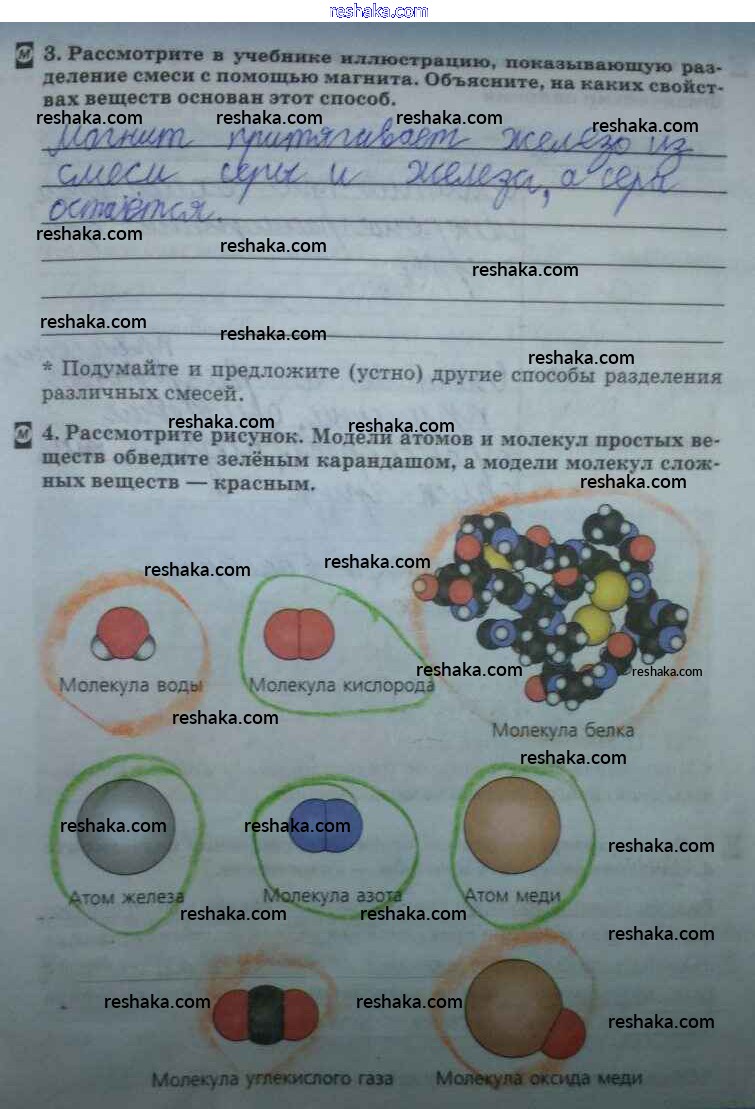 reshaka.com
3. Рассмотрите в учебнике иллюстрацию, показывающую раз-
деление смеси с помощью магнита. Объясните, на каких свойст-
вах веществ основан этот способ.
reshaka.com reshaka.com reshaka.com reshaka.com
Магнит притягивает железо из
смеси серы и железа, а сера
остаётся.
reshaka.com reshaka.com reshaka.com
reshaka.com reshaka.com reshaka.com
* Подумайте и предложите (устно) другие способы разделения
различных смесей.
reshaka.com reshaka.com
4. Рассмотрите рисунок. Модели атомов и молекул простых ве-
ществ обведите зелёным карандашом, а модели молекул слож-
ных веществ — красным.
reshaka.com
reshaka.com reshaka.com
Молекула воды Молекула кислорода
reshaka.com reshaka.com
reshaka.com
Молекула белка
reshaka.com
reshaka.com reshaka.com reshaka.com
Атом железа Молекула азота Атом меди
reshaka.com reshaka.com reshaka.com
reshaka.com reshaka.com reshaka.com
Молекула углекислого газа Молекула оксида меди